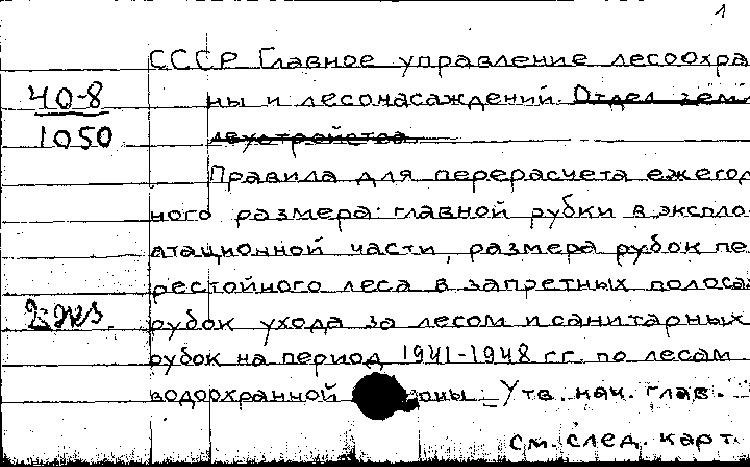 1
СССР Главное управление лесоохра
40-8
ны и лесонасаждений. Отдел зем
1050
леустройства.
Правила для перерасчета ежегод
ного размера главной рубки в экспло
атационной части, размера рубок пе
рестойного леса в запретных полосах
2 экз.
рубок ухода за лесом и санитарных
рубок на период 1941-1948 г.г. по лесам
водоохранной зоны. Утв. нач. глав.
см. след. карт.